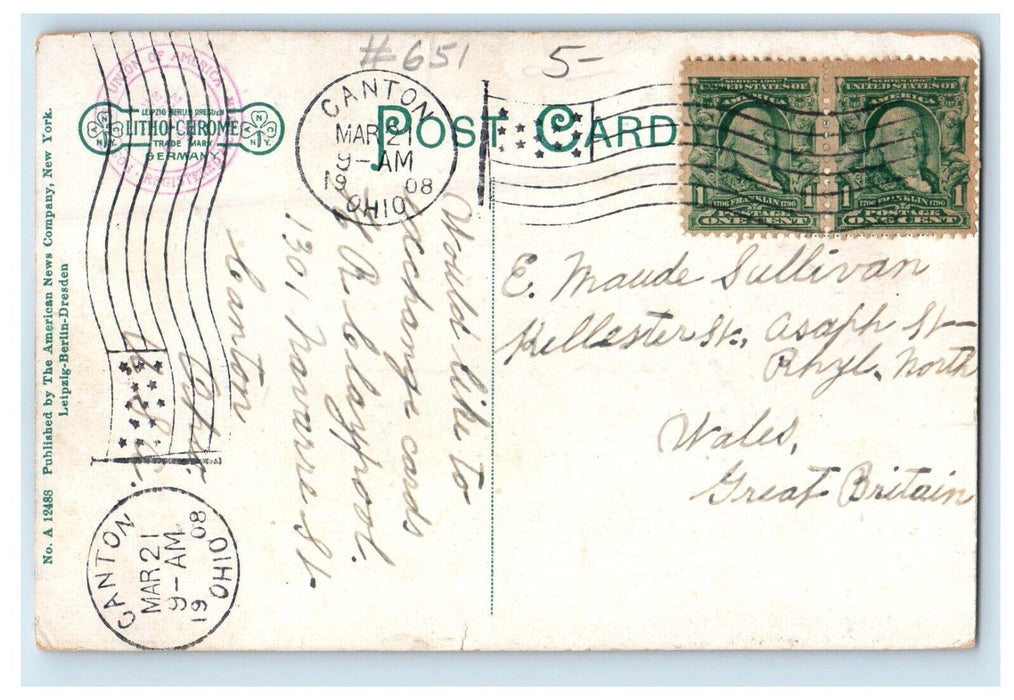 #651 5-
UNION OF AMERICA
LEIPZIG BERLIN DRESDEN
LITHO-CHROME
TRADE MARK
GERMANY
CANTON
MAR 21
9-AM
1908
OHIO
POST CARD
SERIES 1902
UNITED STATES OF
AMERICA
1706 FRANKLIN 1790
1 POSTAGE 1
ONE CENT
SERIES 1902
UNITED STATES OF
AMERICA
1706 FRANKLIN 1790
1 POSTAGE 1
ONE CENT
No. A 12488 Published by The American News Company, New York.
Leipzig-Berlin-Dresden
Would like to
exchange cards
R. Claypool.
1301 Navarre St.
Canton
Ohio.
E. Maude Sullivan
Kellester St., Asaph St-
Rhyl, North
Wales,
Great Britain
CANTON
MAR 21
9-AM
1908
OHIO